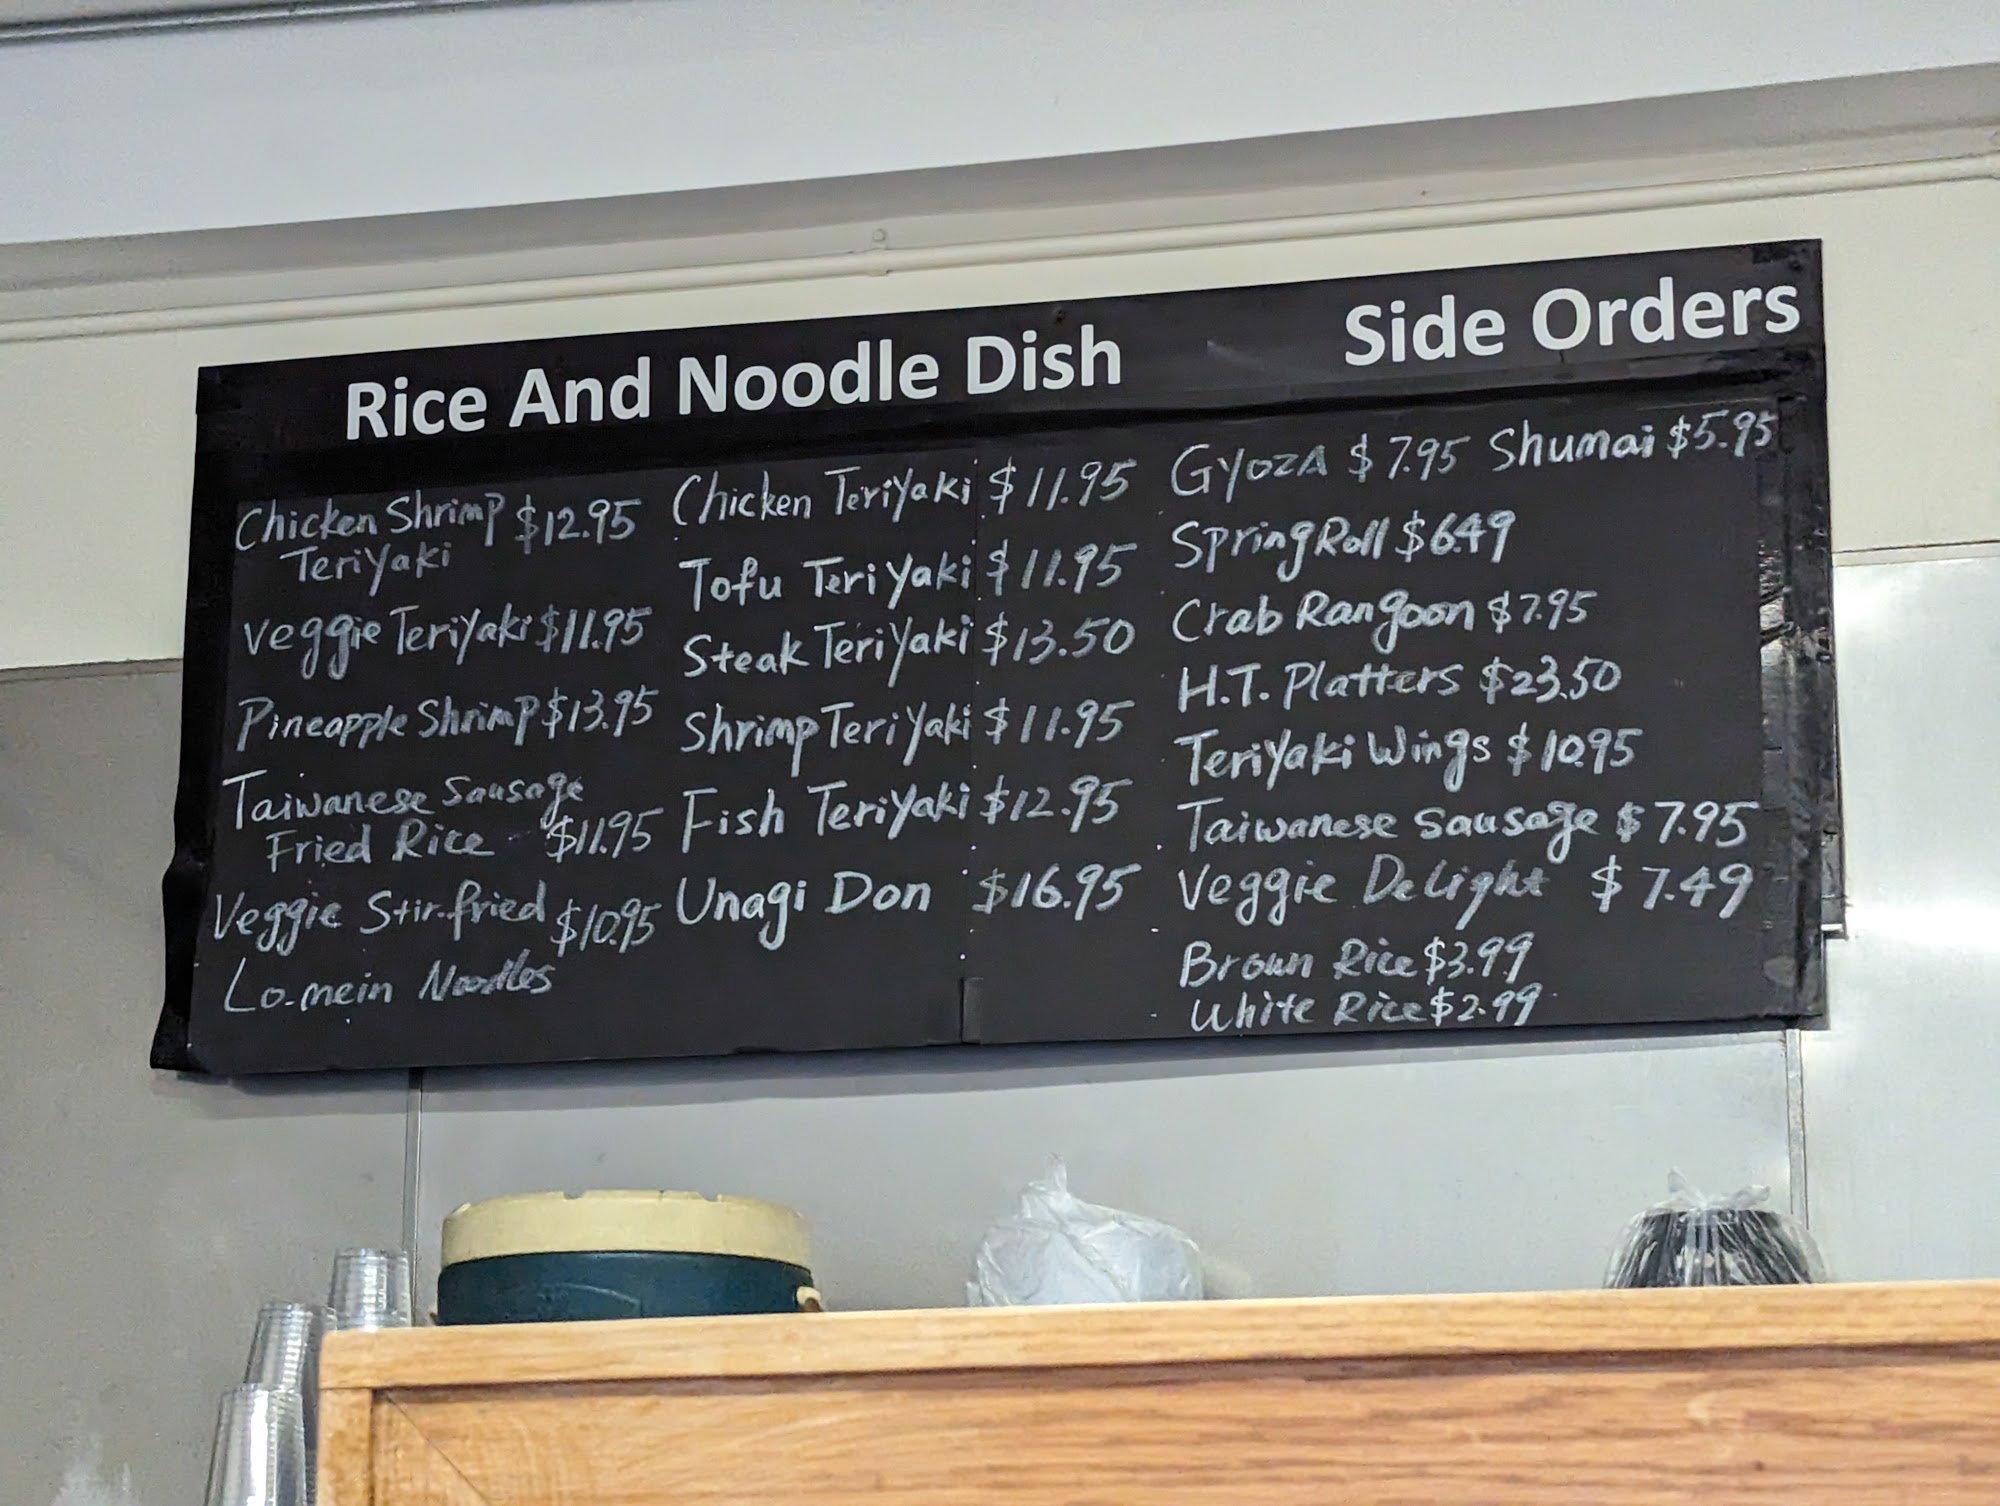 Rice And Noodle Dish
Chicken Shrimp $12.95
Teriyaki
Veggie Teriyaki $11.95
Pineapple Shrimp $13.95
Taiwanese Sausage
Fried Rice $11.95
Veggie Stir.fried $10.95
Lo-mein Noodles
Chicken Teriyaki $11.95
Tofu Teriyaki $11.95
Steak Teriyaki $13.50
Shrimp Teriyaki $11.95
Fish Teriyaki $12.95
Unagi Don $16.95
Side Orders
GYOZA $7.95 Shumai $5.95
Spring Roll $6.49
Crab Rangoon $7.95
H.T. Platters $23.50
Teriyaki Wings $10.95
Taiwanese Sausage $7.95
Veggie Delight $7.49
Brown Rice $3.99
White Rice $2.99